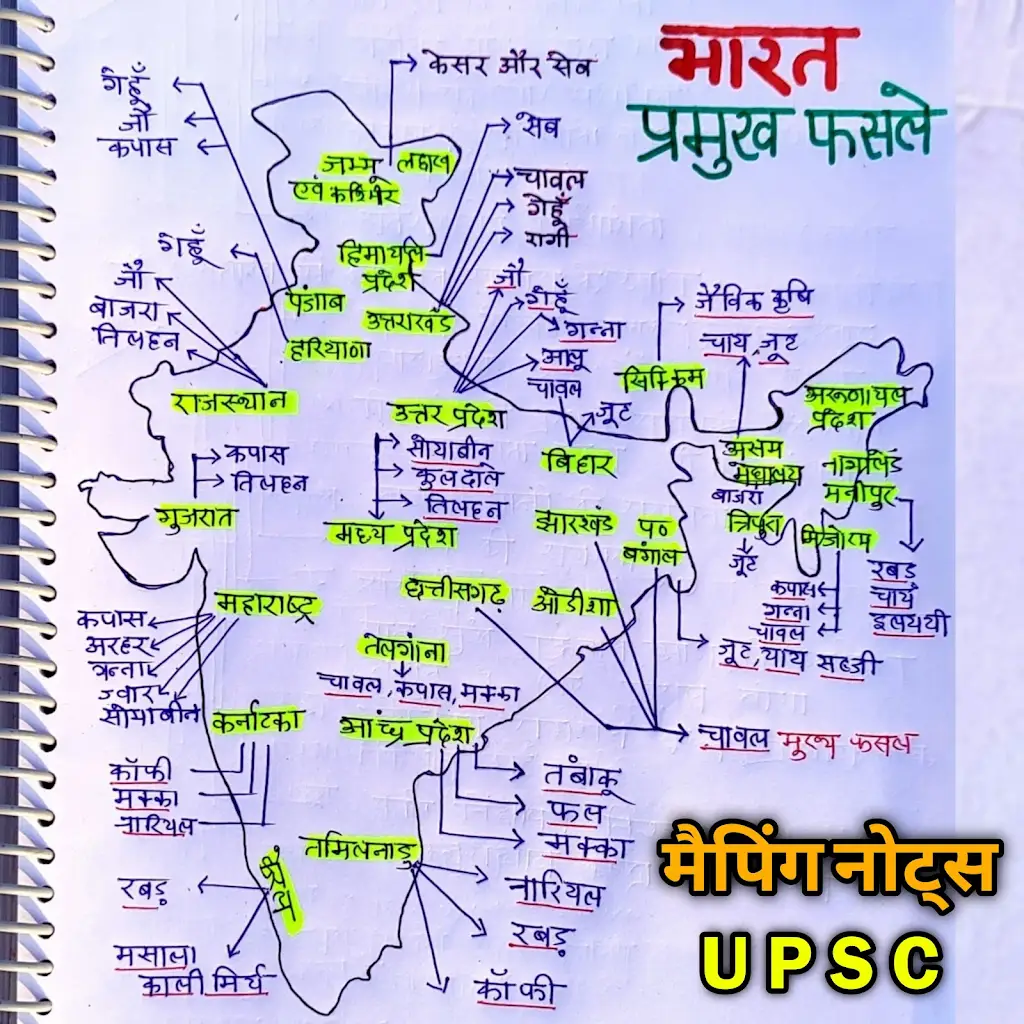 भारत
प्रमुख फसले
केसर और सेब
गेहूँ
जौ
कपास
सेब
जम्मू लद्दाख
एवं कश्मिर
चावल
गेहूँ
रागी
हिमाचल
प्रदेश
गेहूँ
जौ
बाजरा
तिलहन
पंजाब
उत्तराखंड
हरियाणा
जौ
गेहूँ
गन्ना
आलू
चावल
जूट
जैविक कृषि
चाय, जूट
सिक्किम
अरूणाचल
प्रदेश
राजस्थान
उत्तर प्रदेश
बिहार
असम
मेघालय
बाजरा
त्रिपुरा
जूट
नागालैंड
मनीपुर
मिजोरम
कपास
तिलहन
गुजरात
सोयाबीन
कुलदाले
तिलहन
मध्य प्रदेश
झारखंड
प०
बंगाल
रबड़
चाय
इलययी
कपास
गन्ना
चावल
छत्तीसगढ़
ओडीशा
महाराष्ट्र
कपास
अरहर
गन्ना
ज्वार
सोयाबीन
तेलगांना
चावल, कपास, मक्का
जूट, चाय सब्जी
चावल मुख्य फसल
कर्नाटका
आंध्र प्रदेश
कॉफी
मक्का
नारियल
तंबाकू
फल
मक्का
तमिलनाडु
केरल
रबड़
मसाला
काली मिर्च
नारियल
रबड़
कॉफी
मैपिंग नोट्स
UPSC